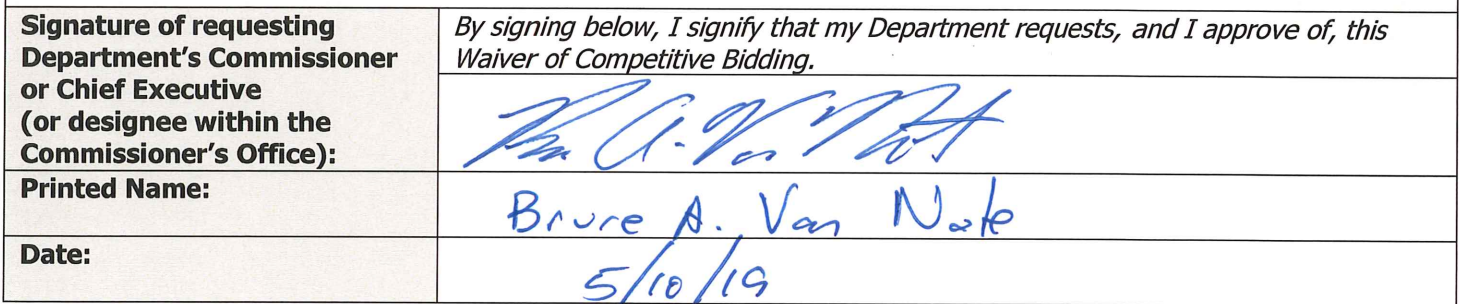 Signature of requesting
Department's Commissioner
or Chief Executive
(or designee within the
Commissioner's Office):
By signing below, I signify that my Department requests, and I approve of, this
Waiver of Competitive Bidding.
Printed Name:
Bruce A. Van Note
Date:
5/10/19